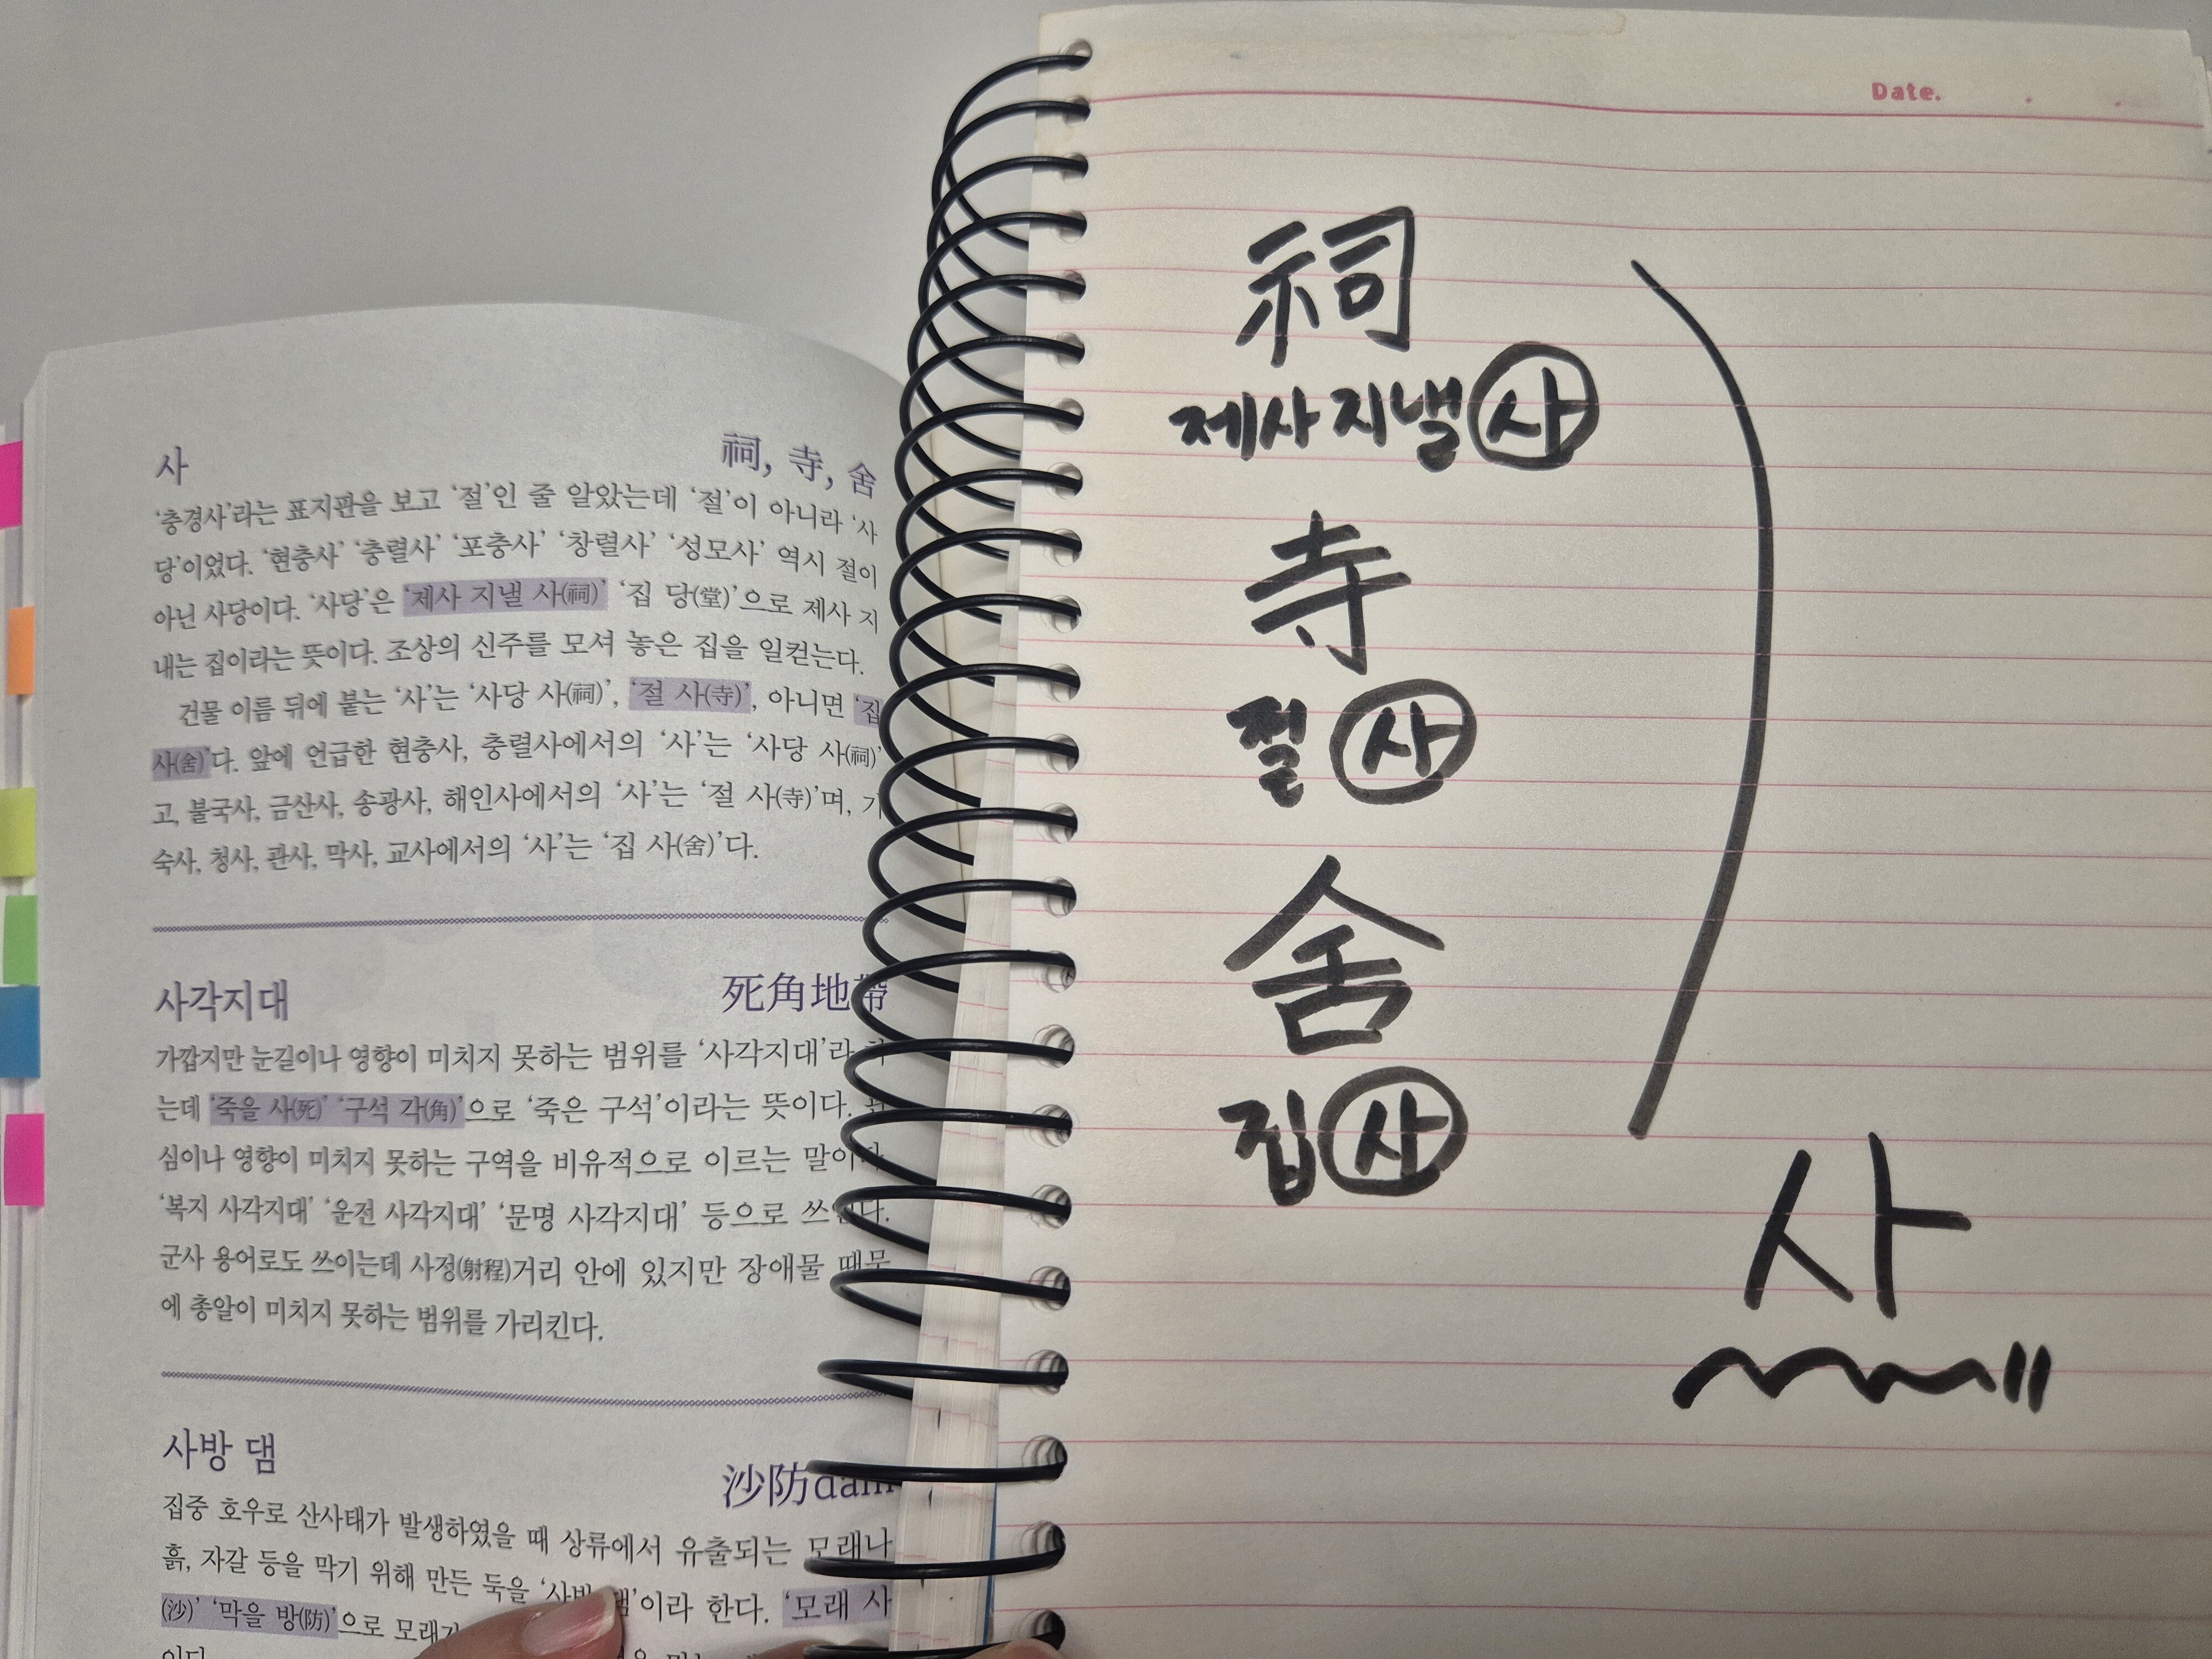 사 祠, 寺, 舍
‘충경사’라는 표지판을 보고 ‘절’인 줄 알았는데 ‘절’이 아니라 ‘사
당’이었다. ‘현충사’ ‘충렬사’ ‘포충사’ ‘창렬사’ ‘성모사’ 역시 절이
아닌 사당이다. ‘사당’은 ‘제사 지낼 사(祠)’ ‘집 당(堂)’으로 제사 지
내는 집이라는 뜻이다. 조상의 신주를 모셔 놓은 집을 일컫는다.
건물 이름 뒤에 붙는 ‘사’는 ‘사당 사(祠)’, ‘절 사(寺)’, 아니면 ‘집
사(舍)’다. 앞에 언급한 현충사, 충렬사에서의 ‘사’는 ‘사당 사(祠)’
고, 불국사, 금산사, 송광사, 해인사에서의 ‘사’는 ‘절 사(寺)’며, 기
숙사, 청사, 관사, 막사, 교사에서의 ‘사’는 ‘집 사(舍)’다.
사각지대 死角地帶
가깝지만 눈길이나 영향이 미치지 못하는 범위를 ‘사각지대’라 하
는데 ‘죽을 사(死)’ ‘구석 각(角)’으로 ‘죽은 구석’이라는 뜻이다. 관
심이나 영향이 미치지 못하는 구역을 비유적으로 이르는 말이다.
‘복지 사각지대’ ‘운전 사각지대’ ‘문명 사각지대’ 등으로 쓰인다.
군사 용어로도 쓰이는데 사정(射程)거리 안에 있지만 장애물 때문
에 총알이 미치지 못하는 범위를 가리킨다.
사방 댐 沙防dam
집중 호우로 산사태가 발생하였을 때 상류에서 유출되는 모래나
흙, 자갈 등을 막기 위해 만든 둑을 ‘사방 댐’이라 한다. ‘모래 사
(沙)’ ‘막을 방(防)’으로 모래가
이다.
Date.
祠
제사 지낼 사
寺
절 사
舍
집 사
사